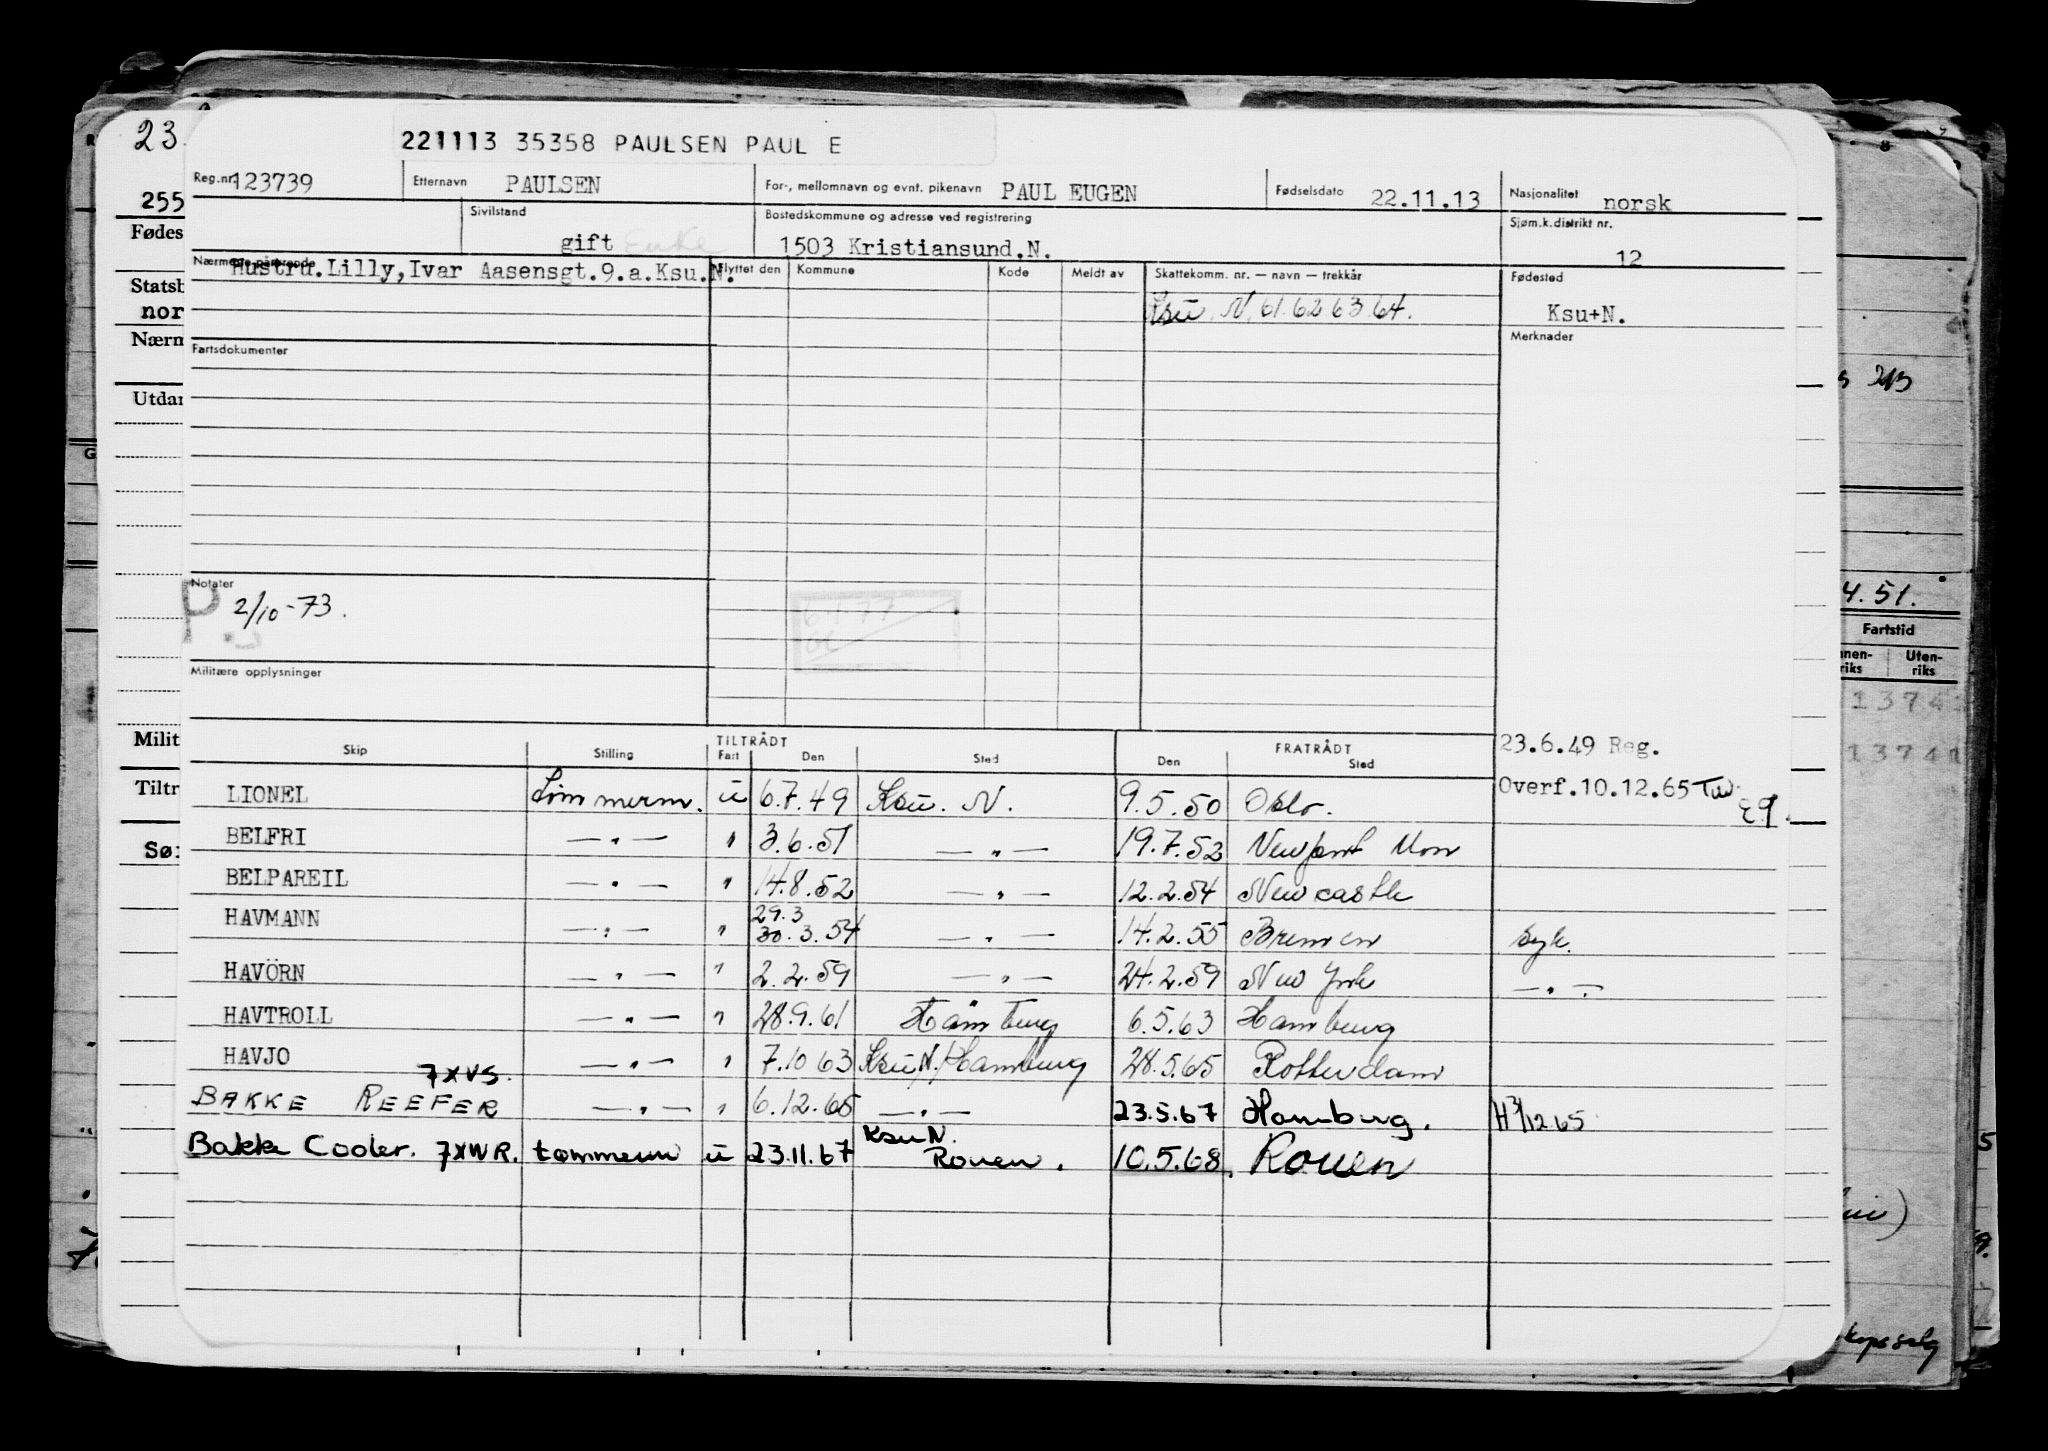 23.
221113 35358 PAULSEN PAUL E
Reg.nr. 123739 Etternavn PAULSEN For-, mellomnavn og evnt. pikenavn PAUL EUGEN Fødselsdato 22.11.13 Nasjonalitet norsk
255
Fødes
Sivilstand gift Enke Bostedskommune og adresse ved registrering 1503 Kristiansund.N. Sjøm.k.distrikt nr. 12
Nærmeste pårørende Hustru.Lilly,Ivar Aasensgt.9.a.Ksu.N. Flyttet den Kommune Kode Meldt av Skattekomm. nr. — navn — trekkår Fødested
Statsb
nor
Ksu. N. 61.62 63.64. Ksu+N.
Nærm
Fartsdokumenter Merknader
Utdan
s 2/3
Notater
P. 2/10-73.
6.1 77
4.51.
Fartstid
nnen-riks Uten-riks
Militære opplysninger
13741
13741
Milit
Tiltr
Sø:
Skip Stilling TILTRÅDT Fart Den Sted FRATRÅDT Den Sted
23.6.49 Reg.
Overf.10.12.65
LIONEL Tømmerm. u 6.7.49 Ksu. N. 9.5.50 Oslo.
BELFRI — " — " 3.6.51 — " — 19.7.52 Newport Mon
BELPAREIL — " — " 14.8.52 — " — 12.2.54 Newcastle
HAVMANN — " — " 29.3 30.3.54 — " — 14.2.55 Bremen syk.
HAVÖRN — " — " 2.2.59 — " — 24.2.59 New York — " —
HAVTROLL — " — " 28.9.61 Hamburg 6.5.63 Hamburg
HAVJO — " — " 7.10 63 Ksu N./Hamburg 28.5.65 Rotterdam
BAKKE REEFER 7XVS. — " — " 6.12.65 — " — 23.5.67 Hamburg. H 3/12 65
Bakke Cooler. 7XWR. tømmerm u 23.11.67 Ksu N. Rouen. 10.5.68. Rouen